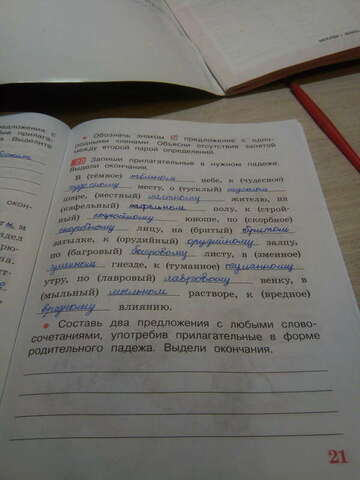 • Обозначь знаком ☑ предложение с одно-
родными членами. Объясни отсутствие запятой
между второй парой определений.
Запиши прилагательные в нужном падеже.
Выдели окончания.
В (тёмное) тёмном небе, к (чудесное)
чудесному месту, о (тусклый) тусклом
шаре, (местный) местному жителю, на
(кафельный) кафельном полу, к (строй-
ный) стройному юноше, по (скорбное)
скорбному лицу, на (бритый) бритом
затылке, к (орудийный) орудийному залпу,
по (багровый) багровому листу, в (змеиное)
змеином гнезде, к (туманное) туманному
утру, по (лавровый) лавровому венку, в
(мыльный) мыльном растворе, к (вредное)
вредному влиянию.
• Составь два предложения с любыми слово-
сочетаниями, употребив прилагательные в форме
родительного падежа. Выдели окончания.
21